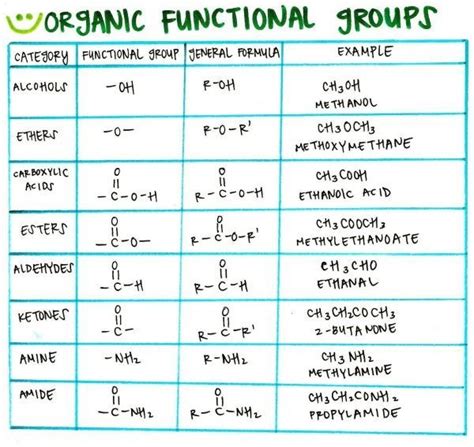 ORGANIC FUNCTIONAL GROUPS
CATEGORY FUNCTIONAL GROUP GENERAL FORMULA EXAMPLE
ALCOHOLS -OH R-OH CH₃OH
METHANOL
ETHERS -O- R-O-R' CH₃OCH₃
METHOXYMETHANE
CARBOXYLIC
ACIDS
O O
|| ||
-C-O-H R-C-O-H
CH₃COOH
ETHANOIC ACID
ESTERS
O O
|| ||
-C-O- R-C-O-R'
CH₃COOCH₃
METHYLETHANOATE
ALDEHYDES
O O
|| ||
-C-H R-C-H
CH₃CHO
ETHANAL
KETONES
O O
|| ||
-C- R-C-R'
CH₃CH₂COCH₃
2-BUTANONE
AMINE -NH₂ R-NH₂ CH₃NH₂
METHYLAMINE
AMIDE
O O
|| ||
-C-NH₂ R-C-NH₂
CH₃CH₂CONH₂
PROPYLAMIDE